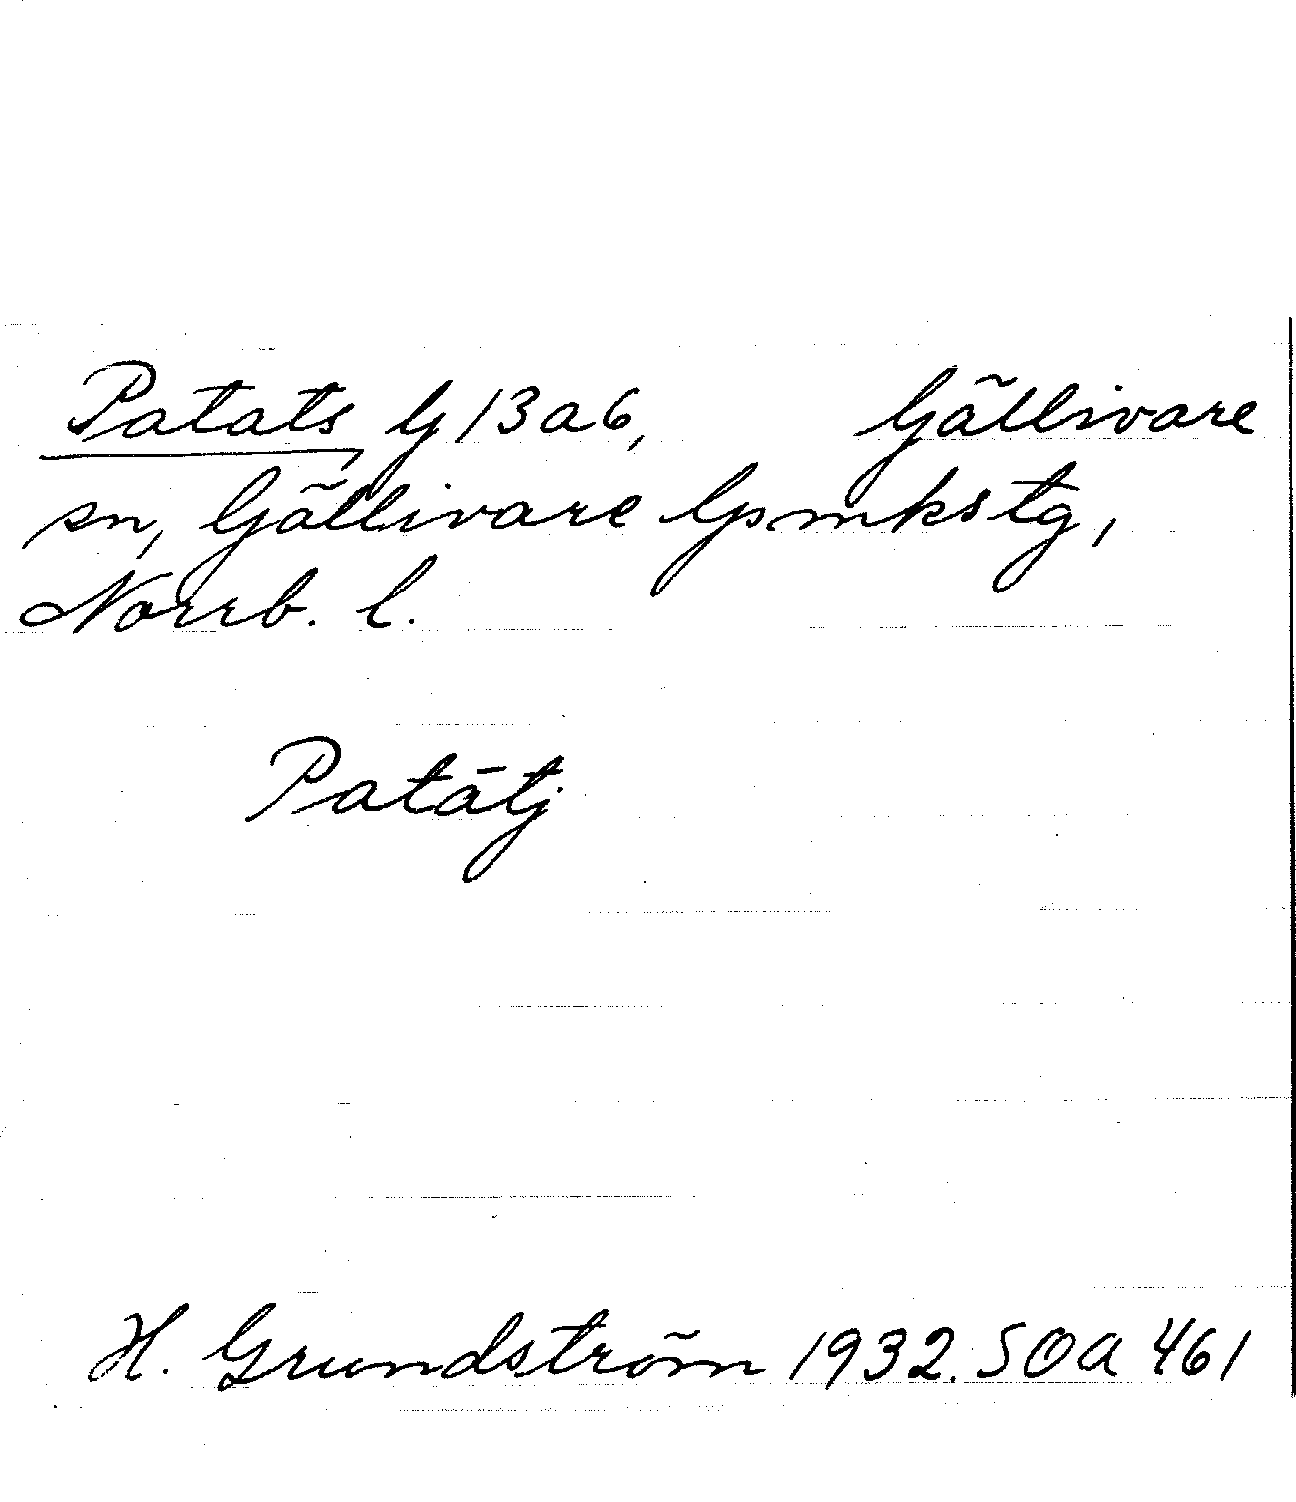 Patats, G 13 a 6, Gällivare
sn, Gällivare lpmkstg,
Norrb. l.
Patātj
H. Grundström 1932. SOA 461